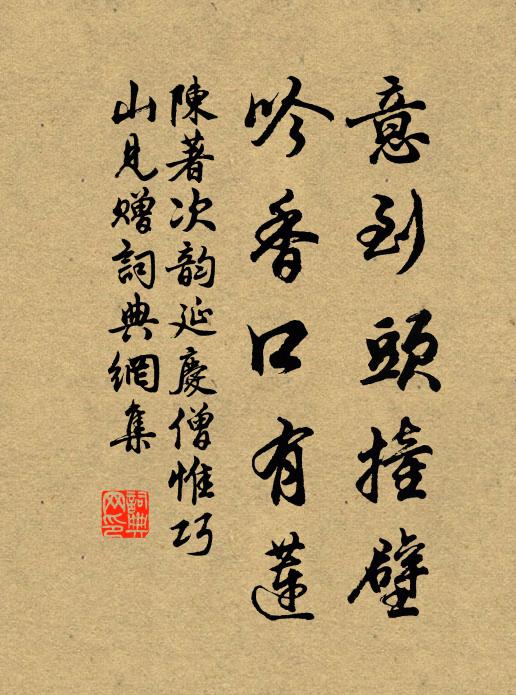 意到頭撞壁
吟香口有蓮
陳著次韵延慶僧惟巧
山見贈詞典網集
詞典
网印